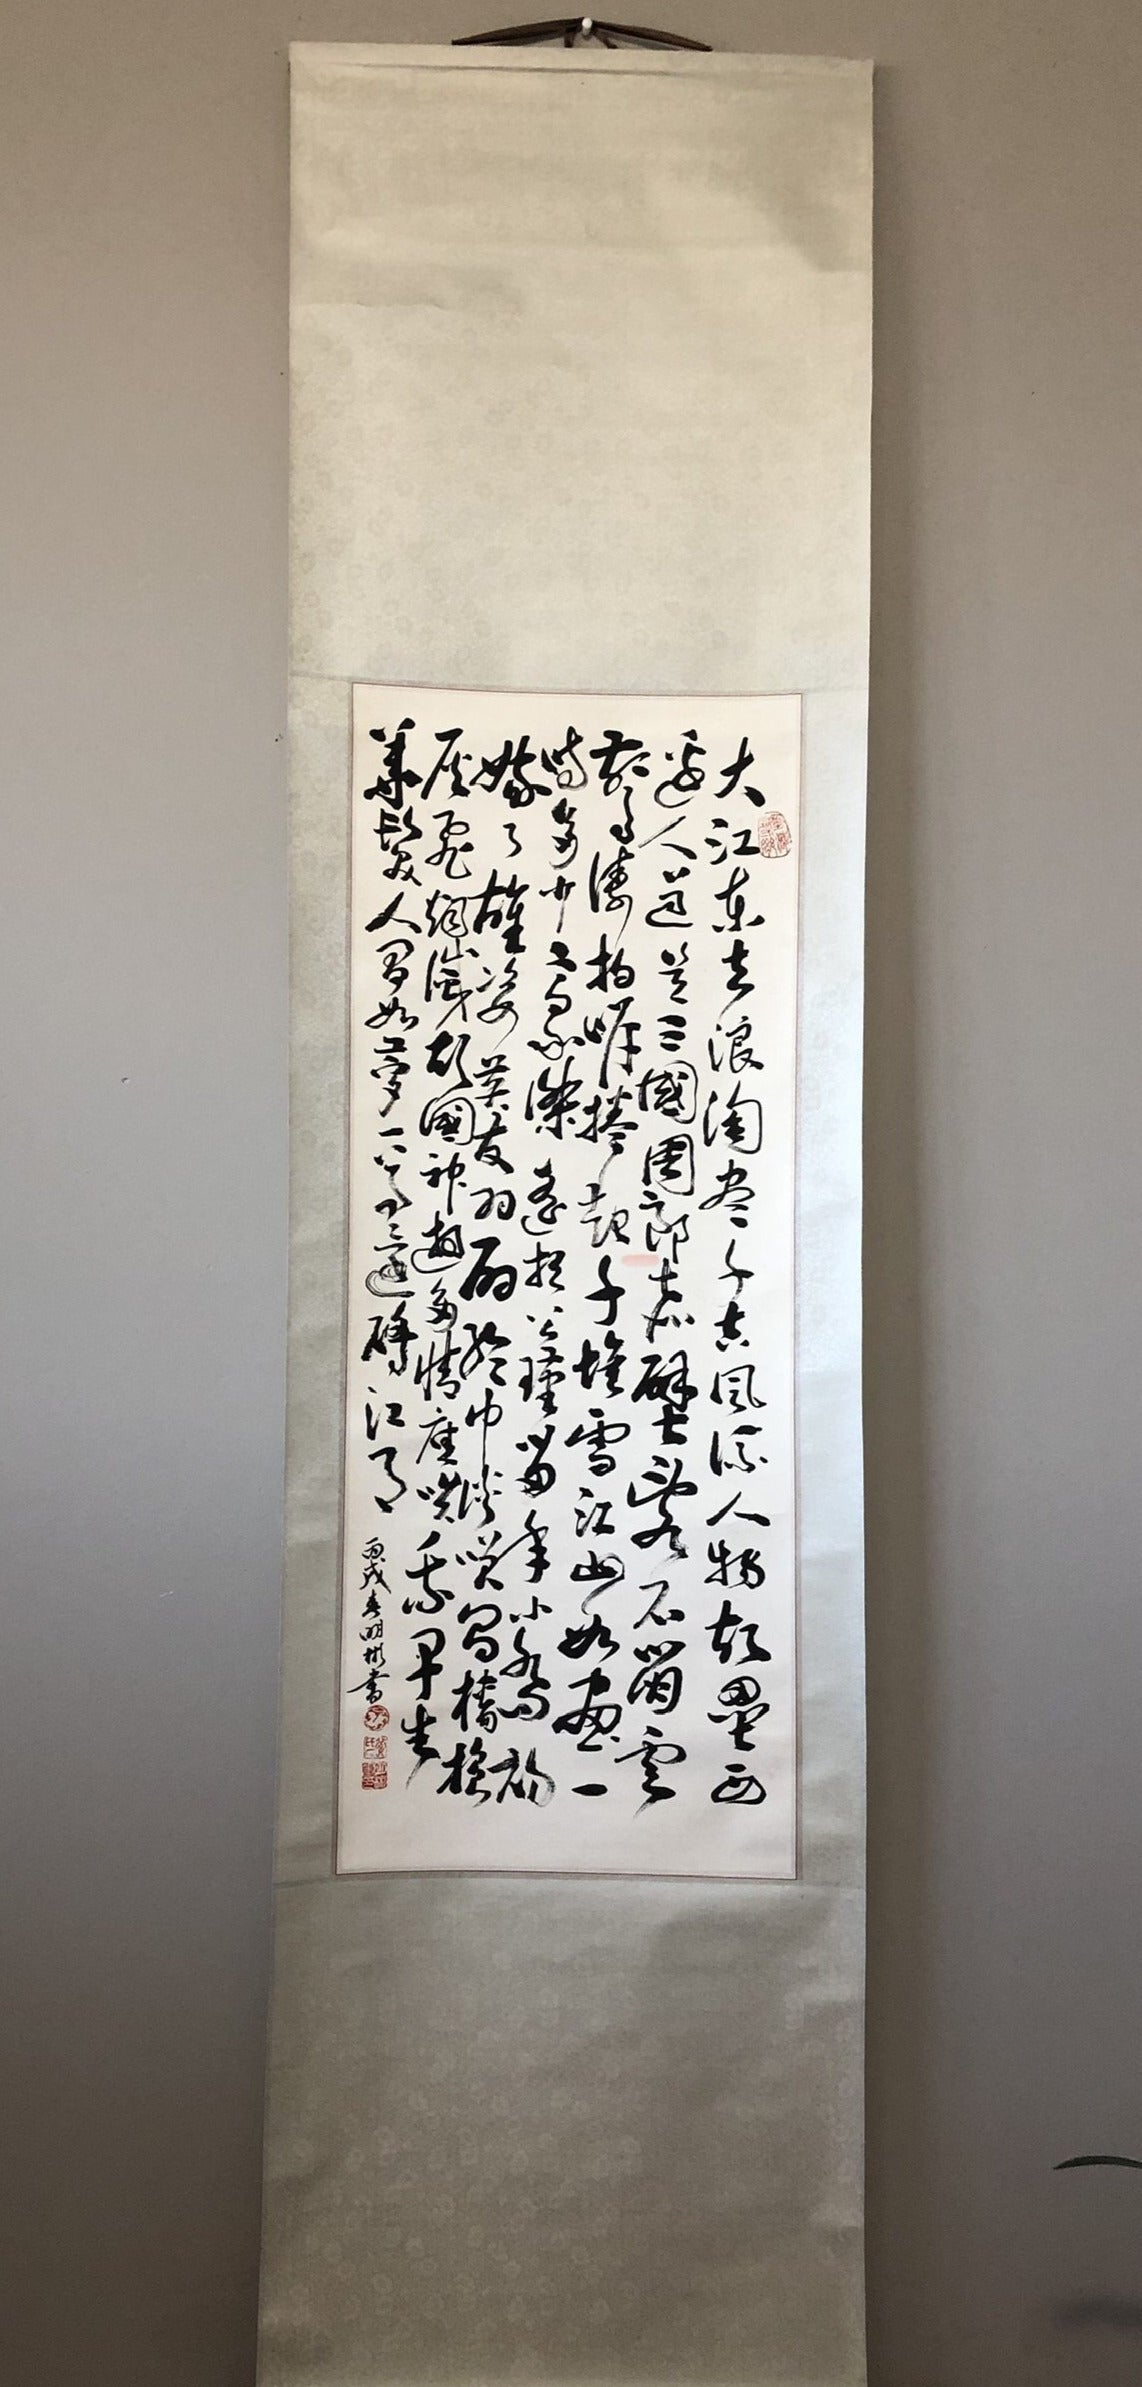 大江東去浪淘盡千古風流人物故壘西
邊人道是三國周郎赤壁亂石崩雲
驚濤拍岸捲起千堆雪江山如畫一
時多少豪傑遙想公瑾當年小喬初
嫁了雄姿英發羽扇綸巾談笑間檣櫓
灰飛煙滅故國神遊多情應笑我早生
華髮人間如夢一尊還酹江月
丙戌春明彬書